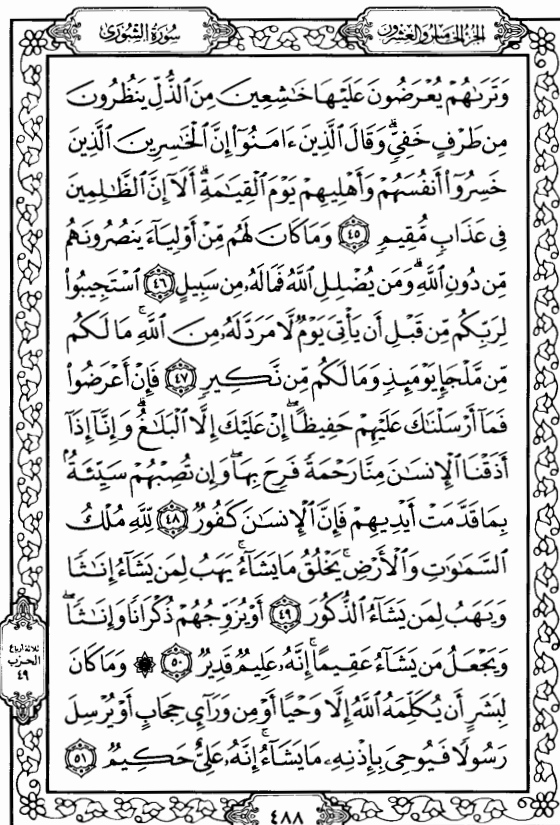 سُورَةُ الشُّورَىٰ
الجُزْءُ الخَامِسُ وَالعِشْرُونَ
وَتَرَىٰهُمْ يُعْرَضُونَ عَلَيْهَا خَـٰشِعِينَ مِنَ ٱلذُّلِّ يَنظُرُونَ
مِن طَرْفٍ خَفِىٍّ ۗ وَقَالَ ٱلَّذِينَ ءَامَنُوٓا۟ إِنَّ ٱلْخَـٰسِرِينَ ٱلَّذِينَ
خَسِرُوٓا۟ أَنفُسَهُمْ وَأَهْلِيهِمْ يَوْمَ ٱلْقِيَـٰمَةِ ۗ أَلَآ إِنَّ ٱلظَّـٰلِمِينَ
فِى عَذَابٍ مُّقِيمٍ ٤٥ وَمَا كَانَ لَهُم مِّنْ أَوْلِيَآءَ يَنصُرُونَهُم
مِّن دُونِ ٱللَّهِ ۗ وَمَن يُضْلِلِ ٱللَّهُ فَمَا لَهُۥ مِن سَبِيلٍ ٤٦ ٱسْتَجِيبُوا۟
لِرَبِّكُم مِّن قَبْلِ أَن يَأْتِىَ يَوْمٌ لَّا مَرَدَّ لَهُۥ مِنَ ٱللَّهِ ۚ مَا لَكُم
مِّن مَّلْجَإٍ يَوْمَئِذٍ وَمَا لَكُم مِّن نَّكِيرٍ ٤٧ فَإِنْ أَعْرَضُوا۟
فَمَآ أَرْسَلْنَـٰكَ عَلَيْهِمْ حَفِيظًا ۖ إِنْ عَلَيْكَ إِلَّا ٱلْبَلَـٰغُ ۗ وَإِنَّآ إِذَآ
أَذَقْنَا ٱلْإِنسَـٰنَ مِنَّا رَحْمَةً فَرِحَ بِهَا ۖ وَإِن تُصِبْهُمْ سَيِّئَةٌۢ
بِمَا قَدَّمَتْ أَيْدِيهِمْ فَإِنَّ ٱلْإِنسَـٰنَ كَفُورٌ ٤٨ لِّلَّهِ مُلْكُ
ٱلسَّمَـٰوَٰتِ وَٱلْأَرْضِ ۚ يَخْلُقُ مَا يَشَآءُ ۚ يَهَبُ لِمَن يَشَآءُ إِنَـٰثًا
وَيَهَبُ لِمَن يَشَآءُ ٱلذُّكُورَ ٤٩ أَوْ يُزَوِّجُهُمْ ذُكْرَانًا وَإِنَـٰثًا ۖ
وَيَجْعَلُ مَن يَشَآءُ عَقِيمًا ۚ إِنَّهُۥ عَلِيمٌ قَدِيرٌ ٥٠ ۞ وَمَا كَانَ
لِبَشَرٍ أَن يُكَلِّمَهُ ٱللَّهُ إِلَّا وَحْيًا أَوْ مِن وَرَآئِ حِجَابٍ أَوْ يُرْسِلَ
رَسُولًا فَيُوحِىَ بِإِذْنِهِۦ مَا يَشَآءُ ۚ إِنَّهُۥ عَلِىٌّ حَكِيمٌ ٥١
ثلاثة أرباع
الحزب
٤٩
٤٨٨